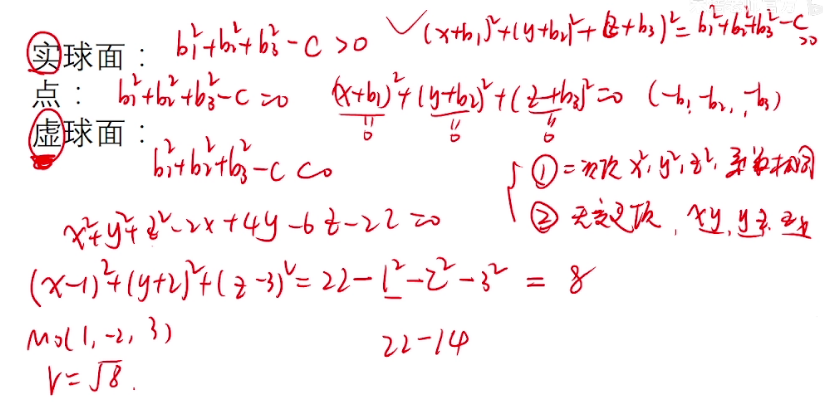 实球面： b₁²+b₂²+b₃²-C>0 ✓(x+b₁)²+(y+b₂)²+(z+b₃)²=b₁²+b₂²+b₃²-C>0
点： b₁²+b₂²+b₃²-C=0 (x+b₁)²+(y+b₂)²+(z+b₃)²=0 (-b₁,-b₂,-b₃)
" 0 " 0 " 0
虚球面：
b₁²+b₂²+b₃²-C<0
① 二次项 x²,y²,z², 系数相同
② 无交叉项, xy, yz, zx
x²+y²+z²-2x+4y-6z-22=0
(x-1)²+(y+2)²+(z-3)²=22-1²-2²-3² = 8
M₀(1,-2,3) 22-14
r=√8.